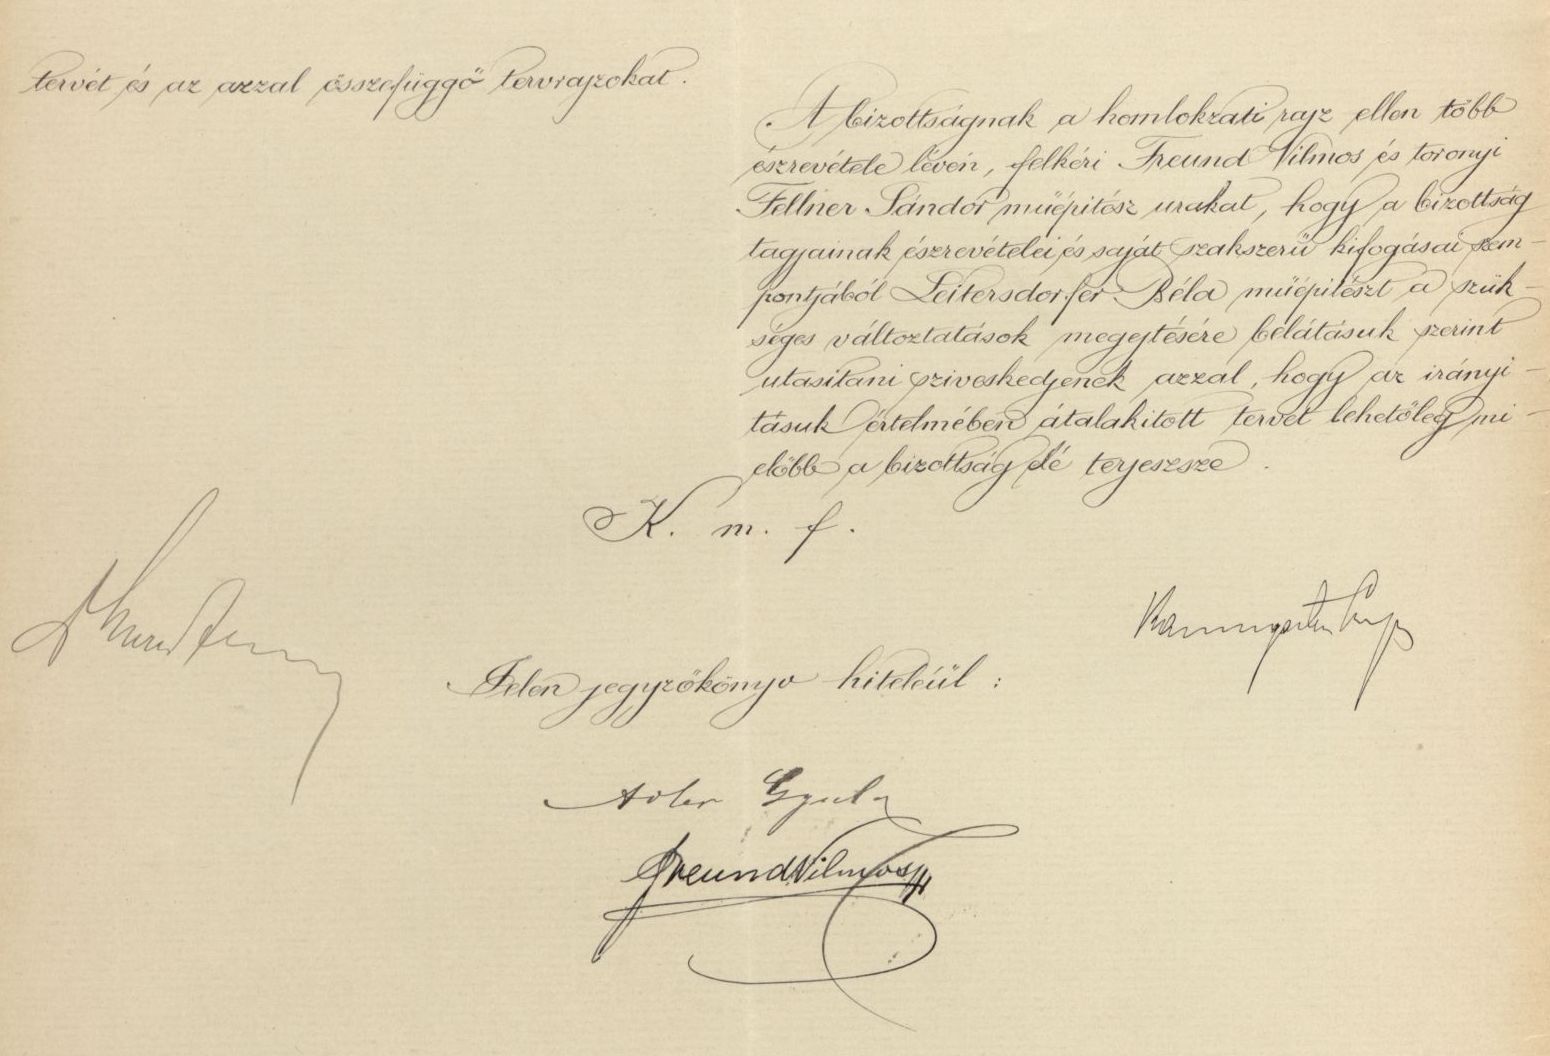 tervét és az azzal összefüggő tervrajzokat.
A bizottságnak a homlokzati rajz ellen több
észrevétele lévén, felkéri Freund Vilmos és toronyi
Fellner Sándor műépitész urakat, hogy a bizottság
tagjainak észrevételei és saját szakszerű kifogásai szem-
pontjából Leitersdorfer Béla műépitészt a szük-
séges változtatások megejtésére belátásuk szerint
utasitani sziveskedjenek azzal, hogy az irányi-
tásuk értelmében átalakitott tervet lehetőleg mi-
előbb a bizottság elé terjeszsze.
K. m. f.
Jelen jegyzőkönyv hiteléül:
Adler Gyula
Freund Vilmos